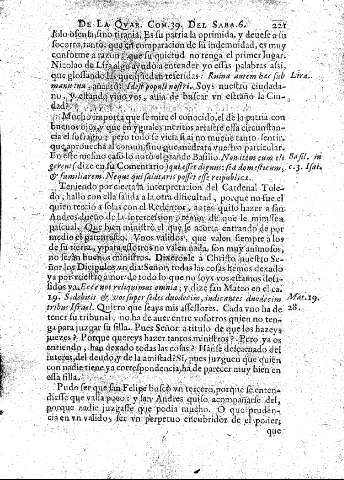 DE LA QVAR. COM. 39. DEL SABA. 6. 221
solo ofensa, sino tirania. Es su patria la oprimida, y deuese a su
socorro, tanto, que en comparacion de su indemnidad, es muy
conforme a razon, que su quietud no tenga el primer lugar.
Nicolao de Lira, ayudò a entender yo estas palabras assi,
que glossando las que quedan referidas: Ruina autem hæc sub
Lira.
manu tua, añadiò: Idest populi nostri. Soys nuestro ciudada-
no, y estando viuo vos, auia de buscar vn estraño la Ciu-
dad?
Mucho importa que se mire el conocido, el de la patria con
buenos ojos, y que en yguales meritos arrastre essa circunstan-
cia el sufragio: pero todo se vicia si ai no mueue tanto sentir,
que aprouecharà al comun, sino que medrarà vuestro particular.
En esse mesmo caso lo notò el grande Basilio. Non item cum eis
Basil. in c. 3. Isai.
gerens (dize en su Comentario) qui esset dignus sua domesticum,
& familiarem. Neque qui salutaris posset esse reipublicæ.
Teniendo por cierta la interpretacion del Cardenal Tole-
do, hallo con ella salida a la otra dificultad, porque no fue el
quien terciò a solas con el Redentor, antes quiso hazer a san
Andres dueño de la intercession
pascual. Que bien ministro el que se acorta entrando de por
medio el parentesco. Vnos validos, que valen siempre a los
de su tierra, y para estotros no valen nada, son muy animosos,
no seràn buenos ministros. Dixeronle a Christo nuestro Se-
ñor los Dicipulos vn dia: Señor, todas las cosas hemos dexado
ya por vuestro amor: de todo lo que no soys vos estamos desa-
sidos ya. Ecce nos reliquimus omnia; y dize san Mateo en el ca.
19. Sedebitis & vos super sedes duodecim, iudicantes duodecim
Mat. 19. 28.
tribus Israel. Quiero que seays mis assessores. Cada vno ha de
tener su tribunal, no ha de auer entre vosotros quien no ten-
ga para juzgar su silla. Pues Señor a titulo de que los hazeys
juezes? Porque quereys hazer tantos ministros? Pero ya os
entiendo, han dexado todas las cosas? Hanse desasernado del
interes, del deudo, y de la amistad? Si, pues juzguen que quien
con nadie tiene ya correspondencia, ha de parecer muy bien en
essa silla.
Pudo ser que san Felipe buscò vn tercero, porque se enten-
diesse que valia poco: y san Andres quiso acompañarse del,
porque nadie juzgasse que podia mucho. O que pruden-
cia en vn valido, ser vn perpetuo encubridor de el poder,
que